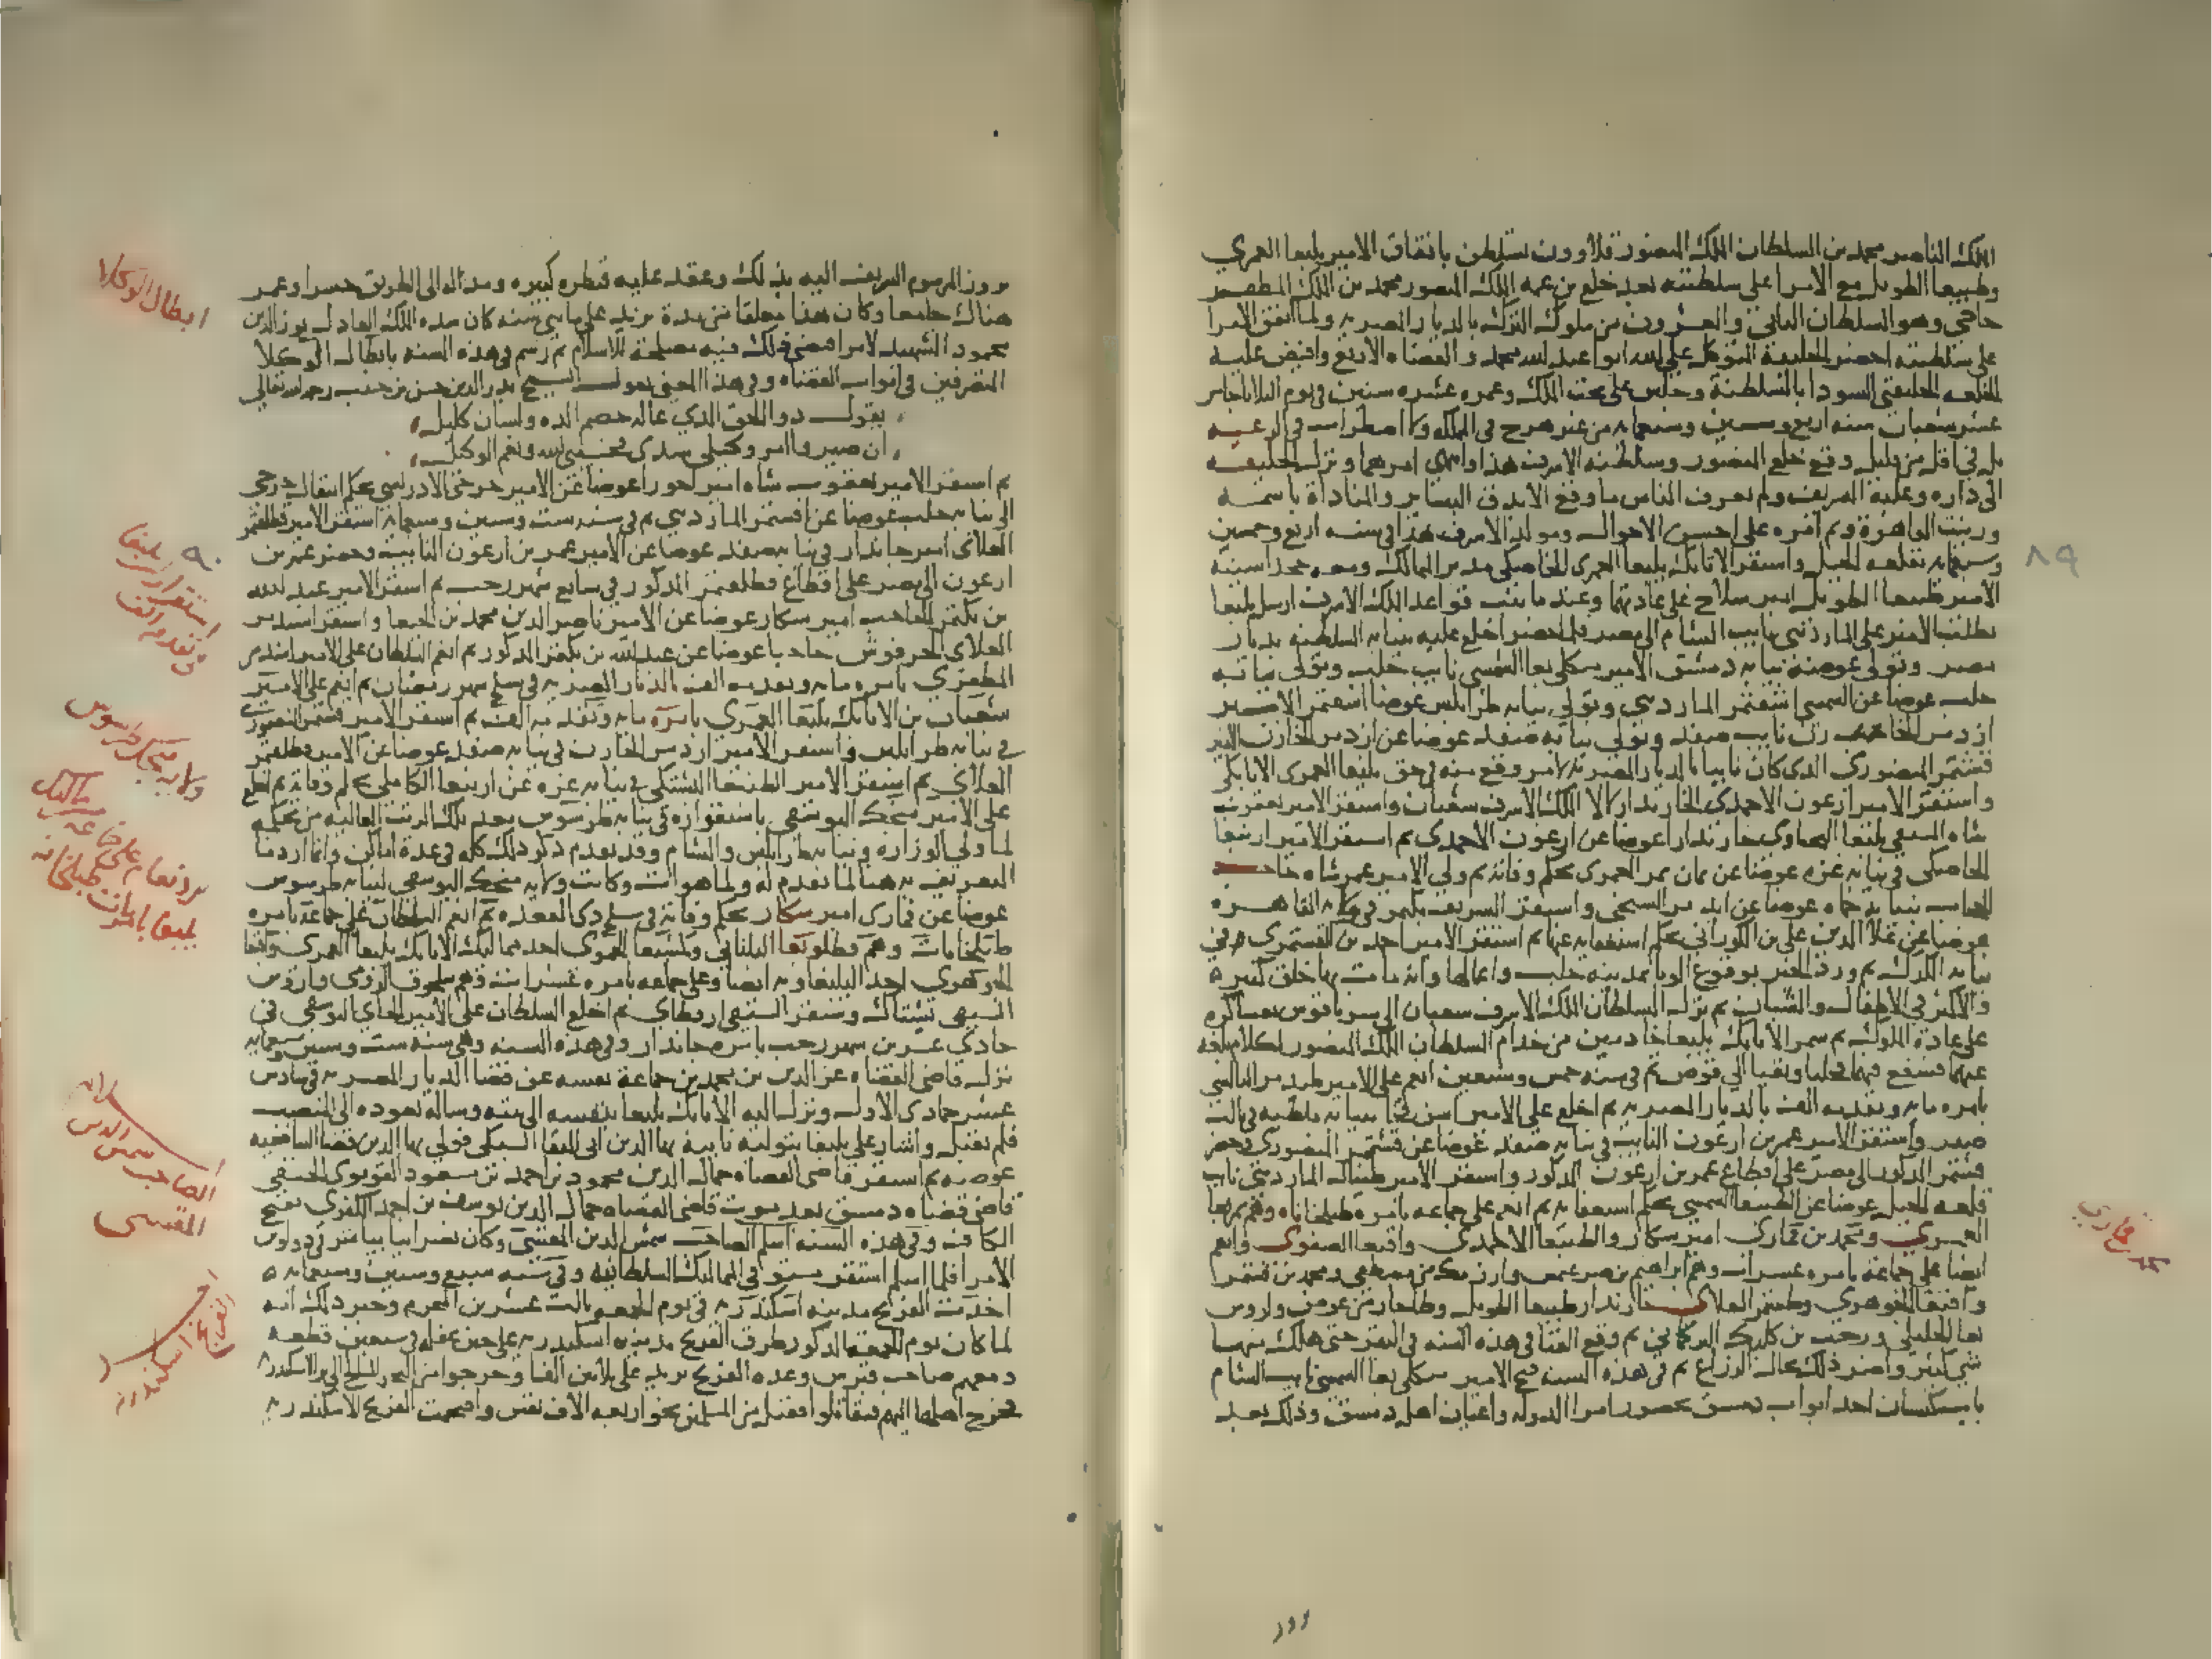 الملك الناصر محمد بن السلطان الملك المنصور قلاوون تسلطن باتفاق الامير يلبغا العمري
وطيبغا الطويل مع الامرا على سلطنته بعد خلع بن عمه الملك المنصور محمد بن الملك المظفر
حاجي وهو السلطان الثاني والعشرون من ملوك الترك بالديار المصريه ولما اتفق الامرا
على سلطنته احضر الخليفة المتوكل على الله ابوا عبد الله محمد والقضاه الاربع وافيض عليه
الخلعه الخليفتي السودا بالسلطنة وجلس على تخت الملك وعمره عشره سنين في يوم الثلاثا خامس
عشر شعبان سنه اربع وستين وسبعمايه من غير هرج في المملكه ولا اضطراب في الرعيه
بل في اقل من قليل وقع خلع المنصور وسلطنه الاشرف هذا وانتهى امرهما ونزل الخليفه
الى داره وعليه التشريف ولم يعرف الناس ما وقع الا بدق البشاير والمناداة باسمه
وزينت القاهرة وتم امره على احسن الاحوال ومولد الاشرف هذا في سنه اربع وخمسين
وسبعمايه بقلعه الجبل واستقر الاتابك يلبغا العمري الخاصكي مدبر الممالك ومعه خجداشه
الامير طيبغا الطويل امير سلاح على عادتهما وعندما ثبت قواعد الملك الاشرف ارسل يلبغا
بطلب الامير علي المارديني نايب الشام الى مصر فلما حضر اخلع عليه بنيابه السلطنه بديار
مصر وتولى عوضه نيابه دمشق الامير منكلي بغا الشمسي نايب حلب وتولى نيابه
حلب عوضا عن الشمسي اشقتمر المارديني وتولى نيابه طرابلس عوضا اشقتمر الامير
ازدمر الخازن نايب صفد وتولى نيابه صفد عوضا عن ازدمر الخازن الامير
قشتمر المنصوري الذي كان نايبا بالديار المصريه لامر وقع منه في حق يلبغا العمري الاتابكي
واستقر الامير ارغون الاحمدي الخازندار لالا الملك الاشرف شعبان واستقر الامير يعقوب
شاه السيفي يلبغا اليحياوي خازندارا عوضا عن ارغون الاحمدي ثم استقر الامير ارنبغا
الخاصكي في نيابه غزه عوضا عن تمان تمر العمري بحكم وفاته ثم ولي الامير عمر شاه حاجب
الحجاب نيابه حماه عوضا عن ايدمر الشيخي واستقر الشريف بكتمر في ولايه القاهره
عوضا عن علا الدين علي بن الكوراني بحكم استعفايه عنها ثم استقر الامير احمد بن القشتمري في
نيابه الكرك ثم ورد الخبر بوقوع الوبا بمدينه حلب واعمالها وانه مات بها خلق كثيره
والاكثر في الاطفال والشباب ثم نزل السلطان الملك الاشرف شعبان الى سرياقوس بعساكره
على عادة الملوك ثم سمر الاتابك يلبغا خادمين من خدام السلطان الملك المنصور لكلام بلغه
عنهما فشفع فيهما فخليا ونفيا الى قوص ثم في سنه خمس وستين انعم على الامير طيدمر البالسي
بامره مايه وتقدمه الف بالديار المصريه ثم اخلع على الامير اسن قجا بنيابه ملطيه في ثالث
صفر واستقر الامير عمر بن ارغون النايب في نيابه صفد عوضا عن قشتمر المنصوري وحضر
قشتمر المذكور الى مصر على اقطاع عمر بن ارغون المذكور واستقر الامير طينال المارديني نايب
قلعه الجبل عوضا عن الطنبغا الشمسي بحكم استعفايه ثم انعم على جماعه بامره طبلخاناه وهم تمربغا
العمري ومحمد بن قماري امير شكار والطنبغا الاحمدي واقبغا الصفوي وانعم
ايضا على جماعه بامره عشرات وهم ابراهيم بن صرغتمش وارزمك من مصطفى ومحمد بن قشتمر
واقبغا الجوهري وطشتمر العلاي خازندار طيبغا الطويل وطاجار من عوض واروس
بغا الخليلي ورجب بن كلبك التركماني ثم وقع الفنا في هذه السنه في البقر حتى هلك منها
شي كثير واضر ذلك بحال الزراع ثم في هذه السنه فتح الامير منكلي بغا الشمسي نايب الشام
باب كيسان احد ابواب دمشق بحضور امرا الدوله واعيان اهل دمشق وذلك بعد
٨٩
بن قماري
بروز المرسوم الشريف اليه بذلك وعقد عليه قنطره كبيره ومد له الى الطريق جسرا وعمر
هناك جامعا وكان هذا مغلقا من مدة تزيد على مايتي سنه كان سده الملك العادل نور الدين
محمود الشهيد لامر اقتضى ذلك فيه مصلحة للاسلام ثم رسم في هذه السنه بابطال الوكلا
المتصرفين في ابواب القضاه وفي هذا المعنى يقول الشيخ بدر الدين حسن بن حبيب رحمه الله تعالى
يقول ذو الحق الذي عاله خصم الده ولسان كليل
ان صيروا امر وكيلي سدى فحسبي الله ونعم الوكيل
ثم استقر الامير يعقوب شاه امير اخورا عوضا عن الامير جرجي الادريسي بحكم انتقال جرجي
الى نيابه حلب عوضا عن اشقتمر المارديني ثم في سنه ست وستين وسبعمايه استقر الامير قطلقتمر
العلائي امير جاندار في نيابه صفد عوضا عن الامير عمر بن ارغون النايب وحضر عمر بن
ارغون الى مصر على اقطاع قطلقتمر المذكور في سابع شهر رجب ثم استقر الامير عبد الله
بن بكتمر الحاجب امير شكار عوضا عن الامير ناصر الدين محمد بن الجيبغا واستقر اسندمر
العلاي الحرفوش حاجبا عوضا عن عبد الله بن بكتمر المذكور ثم انعم السلطان على الامير اسندمر
المظفري بامره مايه وتقدمه الف بالديار المصريه في سلخ شهر رمضان ثم انعم على الامير
شعبان بن الاتابك يلبغا العمري بامرة مايه وتقدمه الف ثم استقر الامير قشتمر المنصوري
في نيابه طرابلس واستقر الامير ازدمر الخازن في نيابه صفد عوضا عن الامير قطلقتمر
العلاي ثم استقر الامير الطنبغا البشتكي في نيابه غزه عن ارنبغا الكاملي بحكم وفاته ثم اخلع
على الامير منجك اليوسفي باستقراره في نيابه طرسوس بعد تلك الرتب العاليه من تحكمه
لما ولي الوزاره ونيابه طرابلس والشام وقد تقدم ذكر ذلك كله في عدة اماكن وانما اردنا
التعريف به هنا لما تقدم له ولما هو ات وكانت ولايه منجك اليوسفي لنيابه طرسوس
عوضا عن قماري امير شكار بحكم وفاته في سلخ ذي القعده ثم انعم السلطان على جماعة بامره
طبلخانات وهم قطلوبغا البلباني وكمشبغا الحموي احد مماليك الاتابك يلبغا العمري واقبغا
الجوهري احد اليلبغاويه ايضا وعلى جماعه بامره عشرات وهم سلجوق الرومي واروس
السيفي بشتاك وسنقر السيفي ارقطاي ثم اخلع السلطان على الامير الجاي اليوسفي في
حادي عشرين شهر رجب بامره جاندار وفي هذه السنه وهي سنه ست وستين وسبعمايه
نزل قاضي القضاه عز الدين بن محمد بن جماعة نفسه عن قضا الديار المصريه في سادس
عشر جمادى الاول ونزل اليه الاتابك يلبغا بنفسه الى بيته وساله بعوده الى المنصب
فلم يقبل واشار على يلبغا بتوليه نايبه بها الدين ابي البقا السبكي فولي بها الدين قضا الشافعيه
عوضه ثم استقر قاضي القضاه جمال الدين محمود بن احمد بن مسعود القونوي الحنفي
قاضي قضاه دمشق بعد موت قاضي القضاه جمال الدين يوسف بن احمد الكفري بفتح
الكاف وفي هذه السنه اسلم الصاحب شمس الدين المقسي وكان نصرانيا يباشر في دواوين
الامرا فلما اسلم استقر مستوفي المماليك السلطانيه وفي سنه سبع وستين وسبعمايه
اخذت الفرنج مدينه اسكندريه في يوم الجمعه ثالث عشرين المحرم وخبر ذلك انه
لما كان يوم الجمعه المذكور طرق الفرنج مدينه اسكندريه على حين غفله في سبعين قطعه
ومعهم صاحب قبرس وعده الفرنج تزيد على ثلاثين الفا وخرجوا من البحر المالح الى بر الاسكندريه
فخرج اهلها اليهم فتقاتلوا فقتل من المسلمين نحو اربعه الاف نفس واقتحمت الفرنج الاسكندريه
ابطال الوكلا
٩٠
استقرار بن يلبغا
في تقدمه الف
ولايه منجك طرسوس
انعام على جماعه من مماليك
يلبغا بامريات طبلخانه
اسلام
الصاحب شمس الدين
المقسي
اخذ
الفرنج اسكندريه